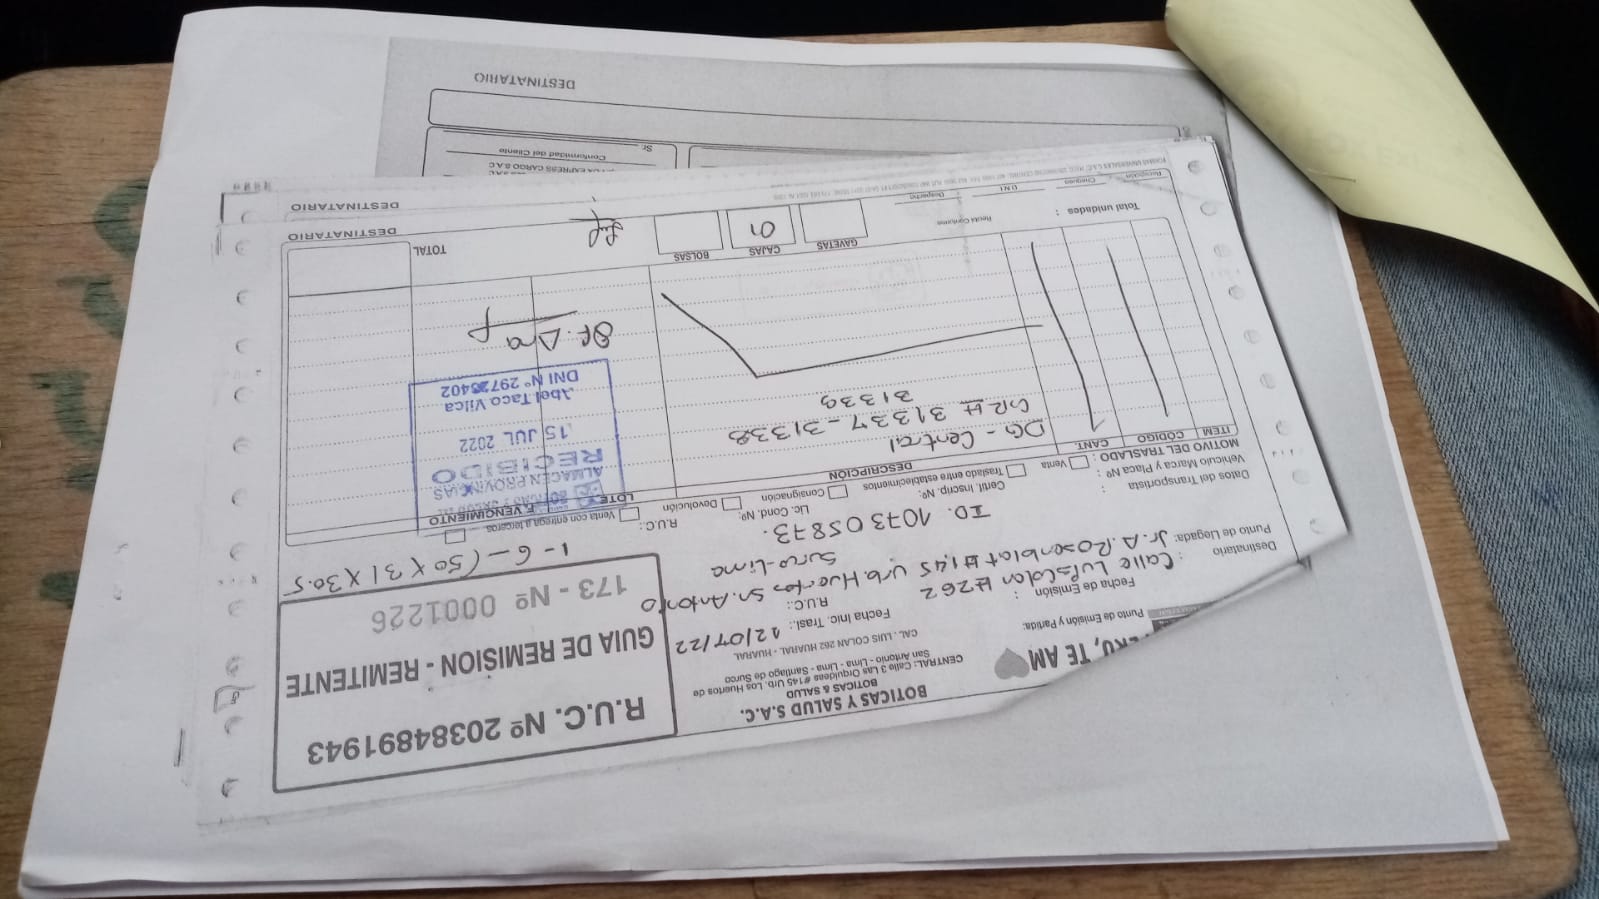 TE AM
BOTICAS Y SALUD S.A.C.
BOTICAS & SALUD
CENTRAL: Calle 3 Las Orquideas #145 Urb. Los Huertos de
San Antonio - Lima - Lima - Santiago de Surco
R.U.C. Nº 20384891943
GUIA DE REMISION - REMITENTE
173 - Nº 0001226
Punto de Emisión y Partida:
CAL. LUIS COLAN 262 HUARAL - HUARAL
Fecha de Emisión :
Fecha Inic. Trasl.: 12/07/22
Calle Luis Colan #262
R.U.C.:
Destinatario :
Punto de Llegada: Jr. A. Rosenblat #145 Urb. Huertos Sn. Antonio
Surco-Lima
1-6-(50x31x30.5
ID. 107305873.
Datos del Transportista :
Vehículo Marca y Placa Nº :
Certif. Inscrip. Nº:
Lic. Cond. Nº:
R.U.C.:
MOTIVO DEL TRASLADO:
Venta
Traslado entre establecimientos
Consignación
Devolución
Venta con entrega a terceros
ITEM
CÓDIGO
CANT.
DESCRIPCIÓN
LOTE
F. VENCIMIENTO
DG - Central
GR # 31337-31338
31339
ALMACEN PROVINCIAS
RECIBIDO
15 JUL 2022
Abel Taco Vilca
DNI Nº
Total unidades :
GAVETAS
CAJAS
01
BOLSAS
TOTAL
Recibí Conforme
Recepción
Chequeo
D.N.I.
Despacho
DESTINATARIO
DESTINATARIO
Conformidad del Cliente
Sr.
DESTINATARIO